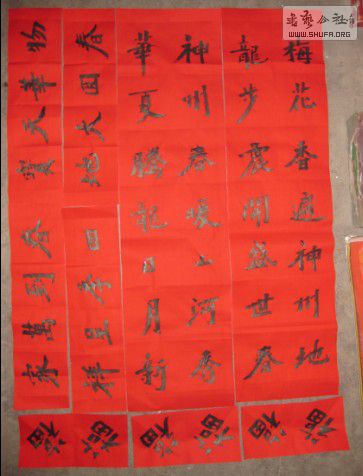 梅花香遍神州地
龍步震開盛世春
神州春暖山河秀
華夏騰龍日月新
春回大地
四季呈祥
物華天寶
春到萬家
福 福 福 福 福 福
書藝公社
WWW.SHUFA.ORG